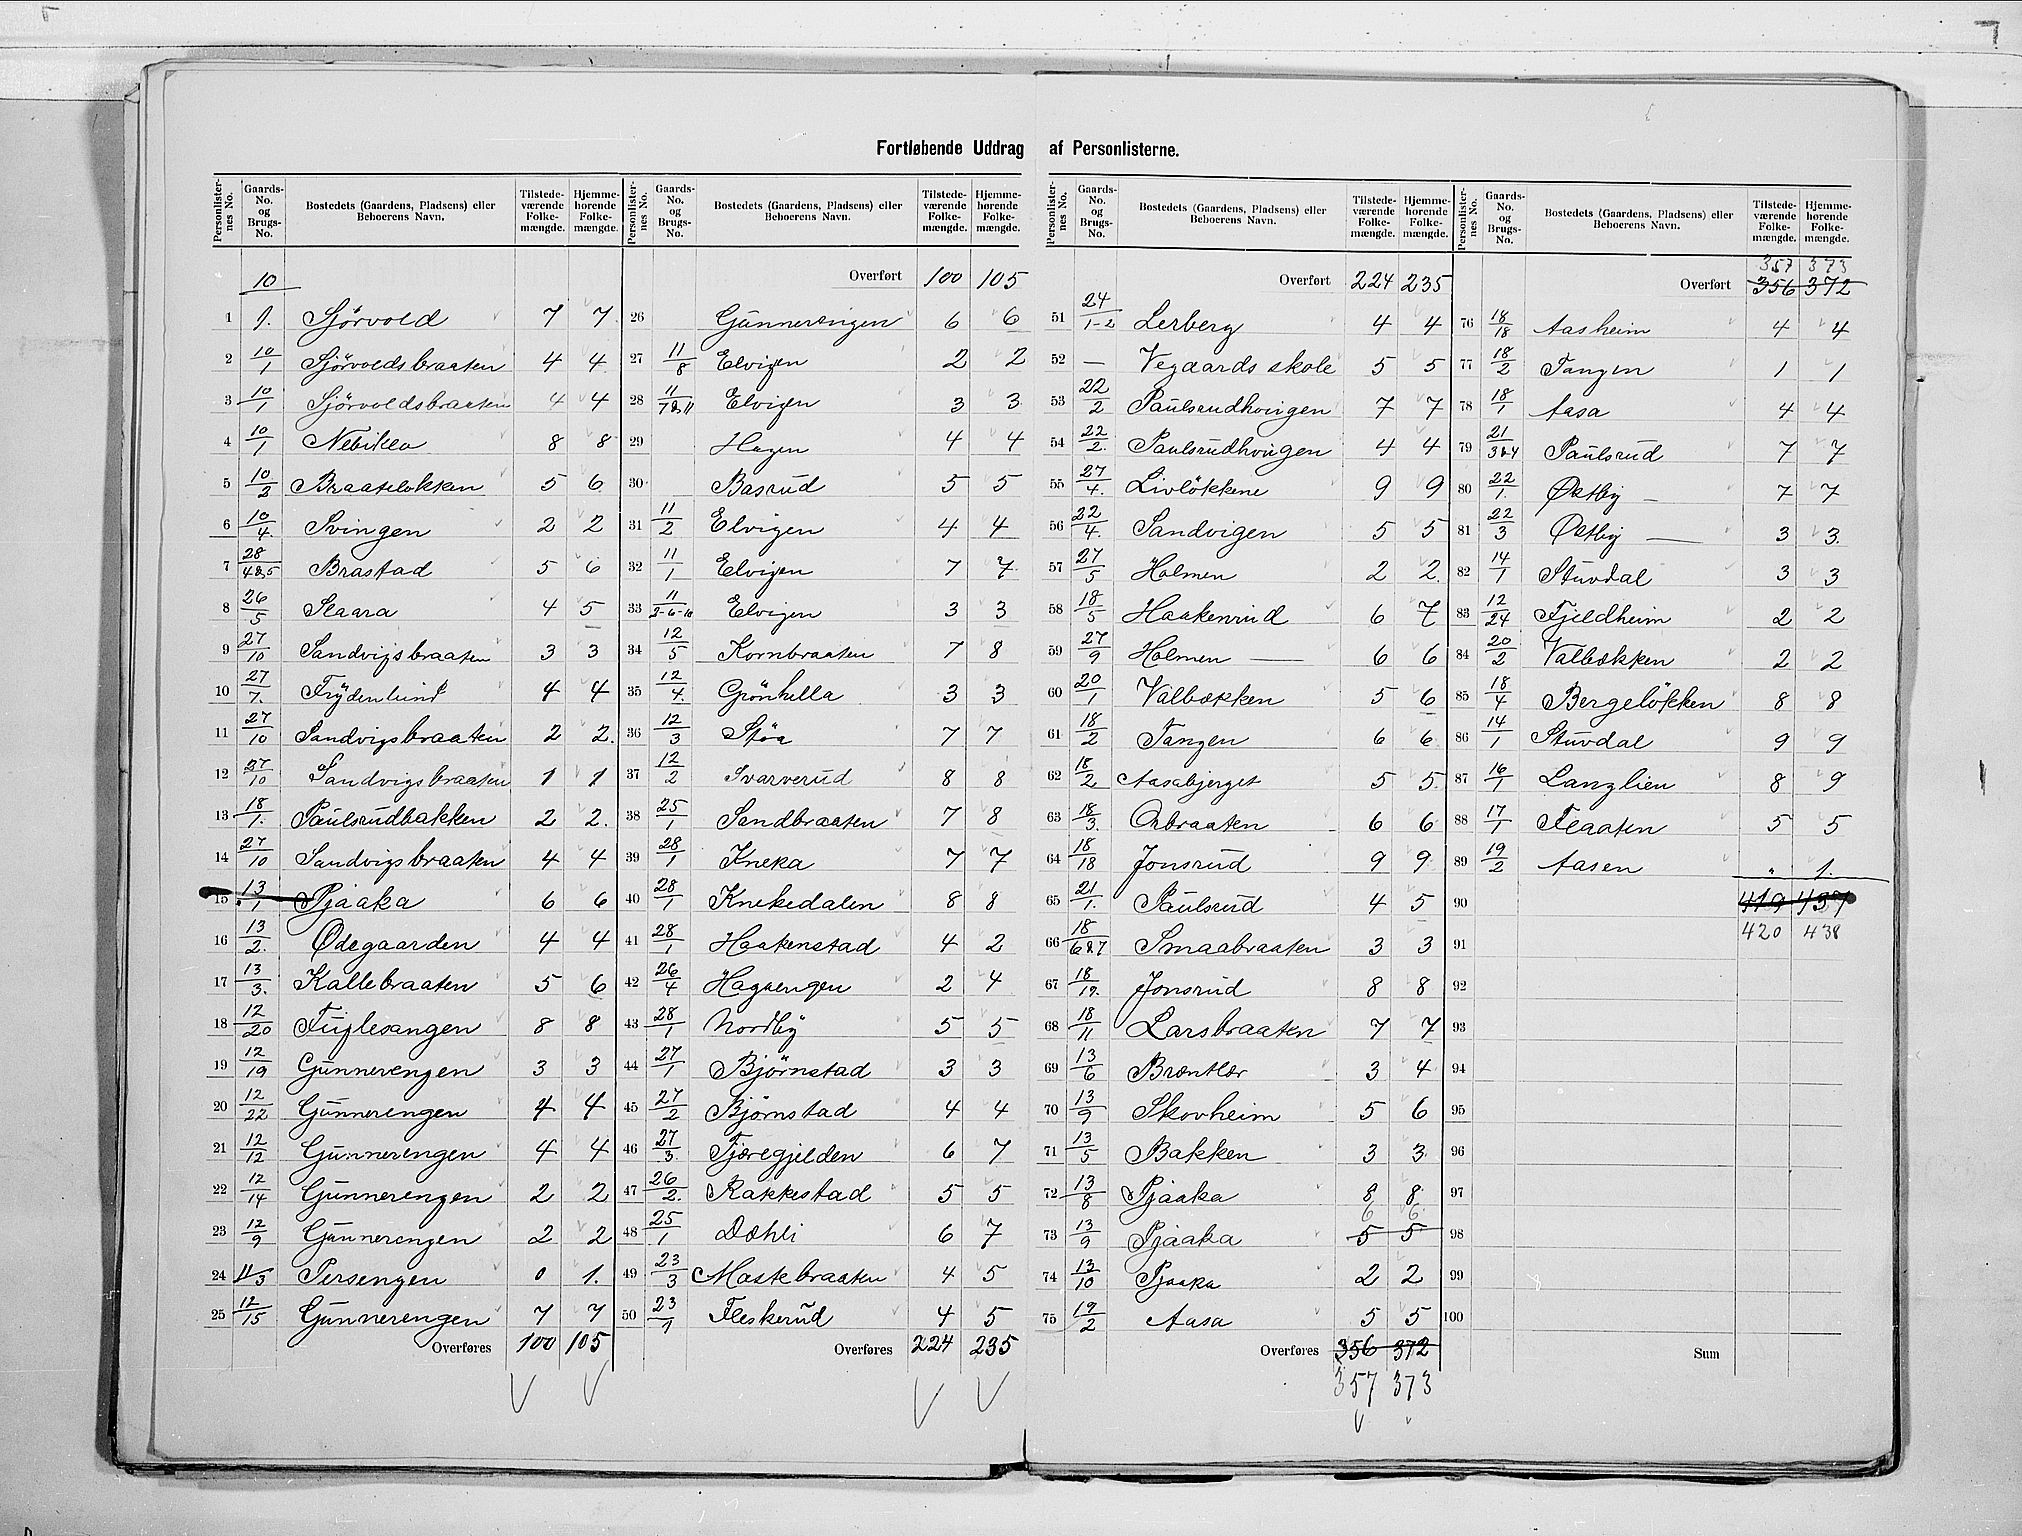 Fortløbende Uddrag af Personlisterne.
Personlister-nes No. Gaards-No. og Brugs-No. Bostedets (Gaardens, Pladsens) eller Beboerens Navn. Tilstede-værende Folke-mængde. Hjemme-hørende Folke-mængde.
10
1 1. Sjörvold 7 7
2 10/1 Sjörvoldsbraaten 4 4
3 10/1 Sjörvoldsbraaten 4 4
4 10/1 8 8
5 10/2 Braateløkken 5 6
6 10/4. Svingen 2 2
7 28/4&5 Brastad 5 6
8 26/5 Slaara 4 5
9 27/10 Sandvigsbraaten 3 3
10 27/7. Frydenlund 4 4
11 27/10 Sandvigsbraaten 2 2.
12 27/10 Sandvigsbraaten 1 1
13 18/1. Paulsrudbakken 2 2.
14 27/10 Sandvigsbraaten 4 4
15 13/1 Pjaaka 6 6
16 13/2. Ødegaarden 4 4
17 13/3. Kallebraaten 5 6
18 12/20 Fuglesangen 8 8
19 12/19 Gunnerengen 3 3
20 12/22 Gunnerengen 4 4
21 12/12 Gunnerengen 4 4
22 12/14 Gunnerengen 2 2
23 12/9 Gunnerengen 2 2
24 11/3 Persengen 0 1.
25 12/15 Gunnerengen 7 7
Overføres 100 105
Personlister-nes No. Gaards-No. og Brugs-No. Bostedets (Gaardens, Pladsens) eller Beboerens Navn. Tilstede-værende Folke-mængde. Hjemme-hørende Folke-mængde.
Overført 100 105
26 Gunnerengen 6 6
27 11/8 Elvigen 2 2
28 11/7&11 Elvigen 3 3
29 Hagen 4 4
30 Basrud 5 5
31 11/2 Elvigen 4 4
32 11/1 Elvigen 7 7
33 11/2-6-10 Elvigen 3 3
34 12/5 Kornbraaten 7 8
35 12/4. Grönhella 3 3
36 12/3 Støa 7 7
37 12/2 Svarverud 8 8
38 25/1 Sandbraaten 7 8
39 28/1 Kneka 7 7
40 28/1 Knekedalen 8 8
41 28/1 Haakenstad 4 2
42 26/4 Hagaengen 2 4
43 28/1 Nordby 5 5
44 27/1 Björnstad 3 3
45 27/2 Björnstad 4 4
46 27/3. Fjæregjelden 6 7
47 26/2. Rakkestad 5 5
48 25/1 Dæhli 6 7
49 23/3 Mastebraaten 4 5
50 23/1 Fleskerud 4 5
Overføres 224 235
Personlister-nes No. Gaards-No. og Brugs-No. Bostedets (Gaardens, Pladsens) eller Beboerens Navn. Tilstede-værende Folke-mængde. Hjemme-hørende Folke-mængde.
Overført 224 235
51 24/1-2 Lerberg 4 4
52 — Vegaards skole 5 5
53 22/2 Paulsrudhougen 7 7
54 22/2. Paulsrudhougen 4 4
55 27/4. Livlökkene 9 9
56 22/4. Sandvigen 5 5
57 27/5 Holmen 2 2
58 18/5 Haakenrud 6 7
59 27/9 Holmen — 6 6
60 20/1 Valbækken 5 6
61 18/2 Tangen 6 6
62 18/2 Aasabjerget 5 5
63 18/3. Oxbraaten 6 6
64 18/18 Jonsrud 9 9
65 21/1. Paulsrud 4 5
66 18/6&7 Smaabraaten 3 3
67 18/19. Jonsrud 8 8
68 18/11 Larsbraaten 7 7
69 13/6 3 4
70 13/9 Skovheim 5 6
71 13/5 Bakken 3 3
72 13/8 Pjaaka 8 8
6 6
73 13/9 Pjaaka 5 5
74 13/10 Pjaaka 2 2
75 19/2 Aasa 5 5
Overføres 356 372
357 373
Personlister-nes No. Gaards-No. og Brugs-No. Bostedets (Gaardens, Pladsens) eller Beboerens Navn. Tilstede-værende Folke-mængde. Hjemme-hørende Folke-mængde.
357 373
Overført 356 372
76 18/18 Aasheim 4 4
77 18/2 Tangen 1 1
78 18/1 Aasa 4 4
79 21/3&4 Paulsrud 7 7
80 22/1. Østby — 7 7
81 22/3 Østby — 3 3.
82 14/1 Stuvdal 3 3
83 12/24 Fjeldheim 2 2
84 20/2 Valbækken 2 2
85 18/4 Bergeløkken 8 8
86 14/1 Stuvdal 9 9
87 16/1 Langlien 8 9
88 17/1 Flaaten 5 5
89 19/2 Aasen " 1.
90 419 437
91 420 438
92
93
94
95
96
97
98
99
100
Sum